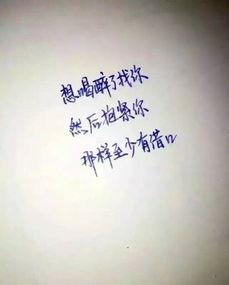 想喝醉了找你
然后抱紧你
那样至少有借口